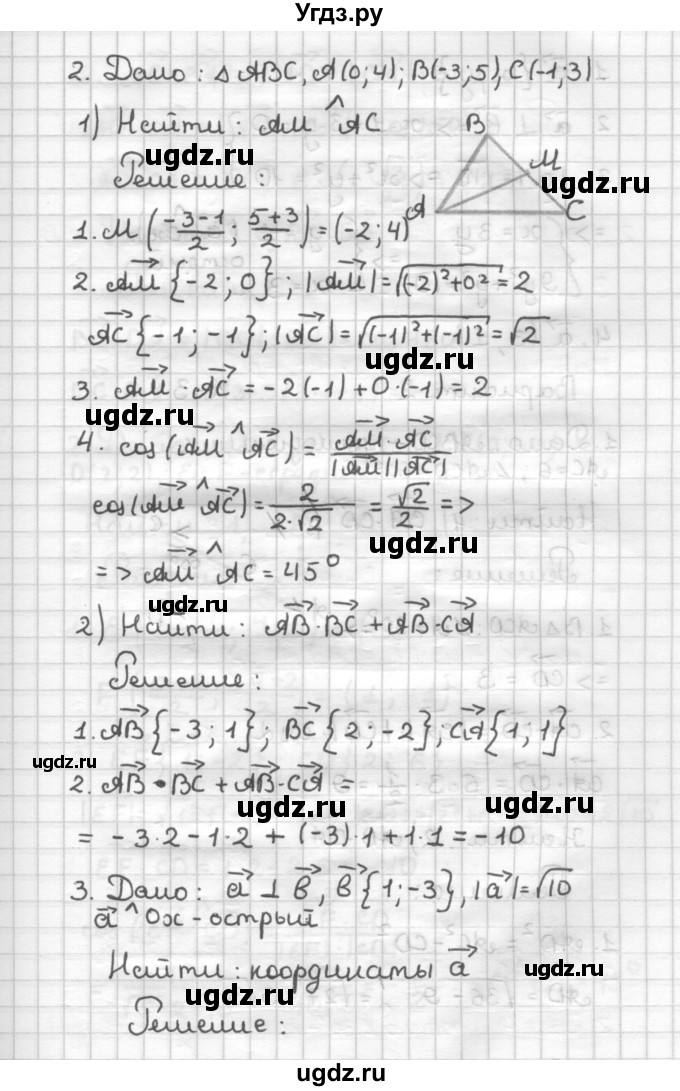 Угдз.ру
2. Дано: △ABC, A(0;4); B(-3;5), C(-1;3)
1) Найти: AM ^ AC
B
M
A
C
ugdz.ru
ugdz.ru
Решение:
1. M ((-3-1)/2; (5+3)/2) = (-2; 4)
2. AM→ {-2; 0}; |AM→| = √((-2)²+0²) = 2
AC→ {-1; -1}; |AC→| = √((-1)²+(-1)²) = √2
ugdz.ru
3. AM→ · AC→ = -2(-1) + 0·(-1) = 2
ugdz.ru
4. cos(AM→ ^ AC→) = (AM→ · AC→)/(|AM→||AC→|)
cos(AM→ ^ AC→) = 2/(2·√2) = √2/2 =>
ugdz.ru
=> AM→ ^ AC = 45°
ugdz.ru
2) Найти: AB→·BC→ + AB→·CA→
Решение:
1. AB→ {-3; 1}; BC→ {2; -2}; CA→ {1; 1}
ugdz.ru
2. AB→ · BC→ + AB→·CA→ =
ugdz.ru
ugdz.ru
= -3·2 - 1·2 + (-3)·1 + 1·1 = -10
3. Дано: a→ ⊥ b→, b→ {1; -3}, |a→| = √10
a→ ^ Ox - острый
Найти: координаты a→
ugdz.ru
ugdz.ru
Решение:
ugdz.ru